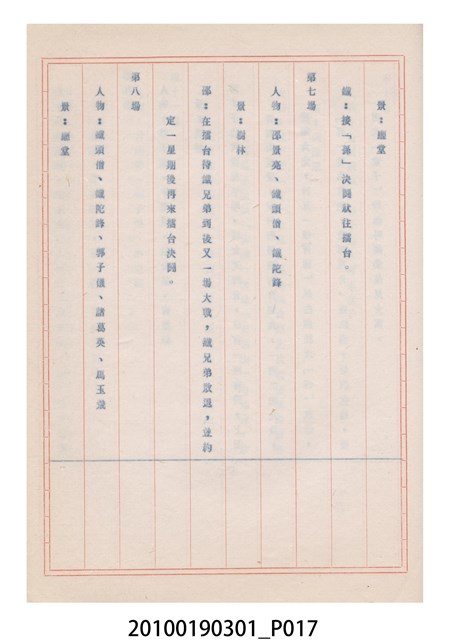 景：廟堂
鐵：接「孫」決鬪狀往擂台。
第七場
人物：邵景亮、鐵頭僧、鐵陀錚
景：樹林
邵：在擂台待鐵兄弟到後又一場大戰，鐵兄弟敗退，並約
定一星期後再來擂台決鬪。
第八場
人物：鐵頭僧、鐵陀錚、郭子儀、諸葛英、馬玉
景：廟堂
20100190301_P017